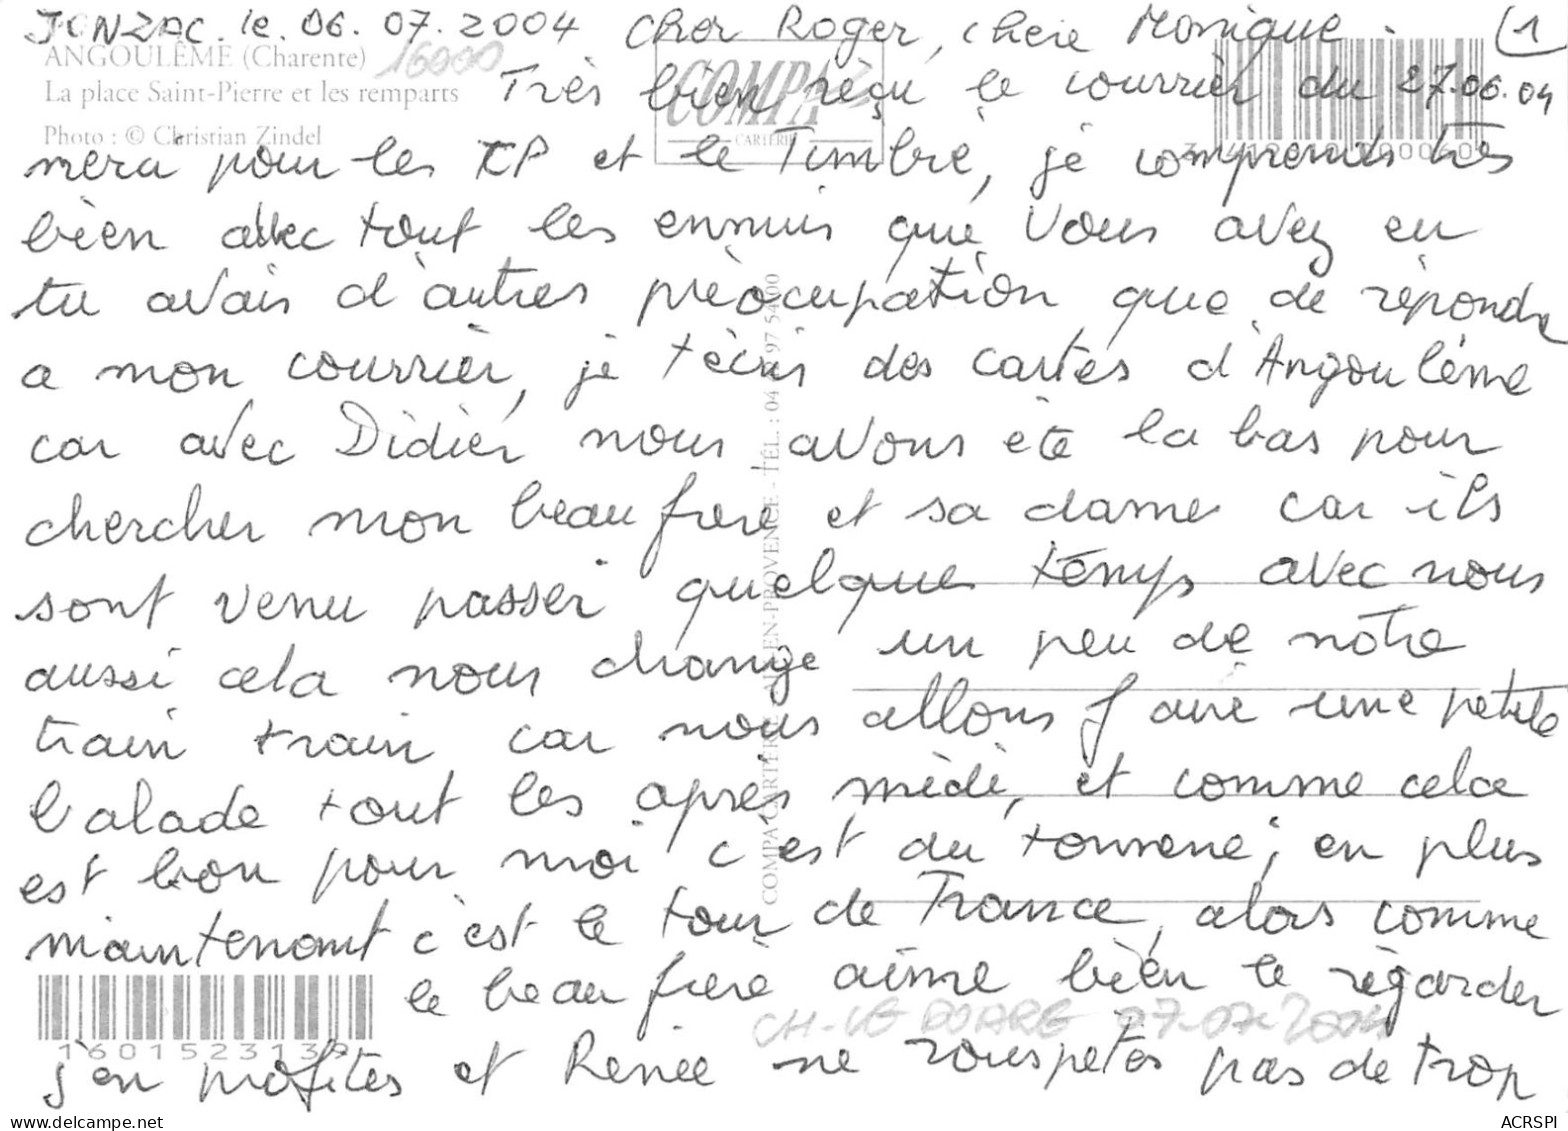 JONZAC. le. 06. 07. 2004 Cher Roger, chère Monique. (1
ANGOULÊME (Charente) 16000
La place Saint-Pierre et les remparts
Photo : © Christian Zindel
COMPA
CARTERIE
Très bien règu le courrièr du 27.06.04
merci pour les CP et le Timbre, je comprends très
bièn avec tout les ennuis que vous avez eu
tu avais d'autres prèocupation que de répondre
a mon courrièr, je t'écris des cartes d'Angoulème
car avec Didier nous avons été la bas pour
chercher mon beau frere et sa dame car ils
sont venu passer quelque temps avec nous
aussi cela nous change un peu de notre
train train car nous allons faire une petite
balade tout les apres midi, et comme cela
est bon pour moi c'est du tonnerre; en plus
maintenant c'est le tour de France, alors comme
le beau frere aime bièn le règarder
j'en profites et Renée ne rouspetes pas de trop
CH-LE 07-07-2004
COMPA CARTERIE EN-PROVENCE - TÉL. : 04 97 54 00